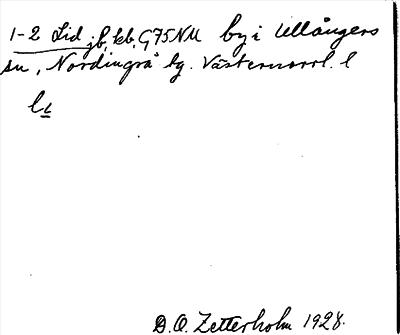 1-2 Lid jb, kb, G75NM by i Ullångers
sn, Nordingrå tg. Västernorrl. l
li
D.O. Zetterholm 1928.